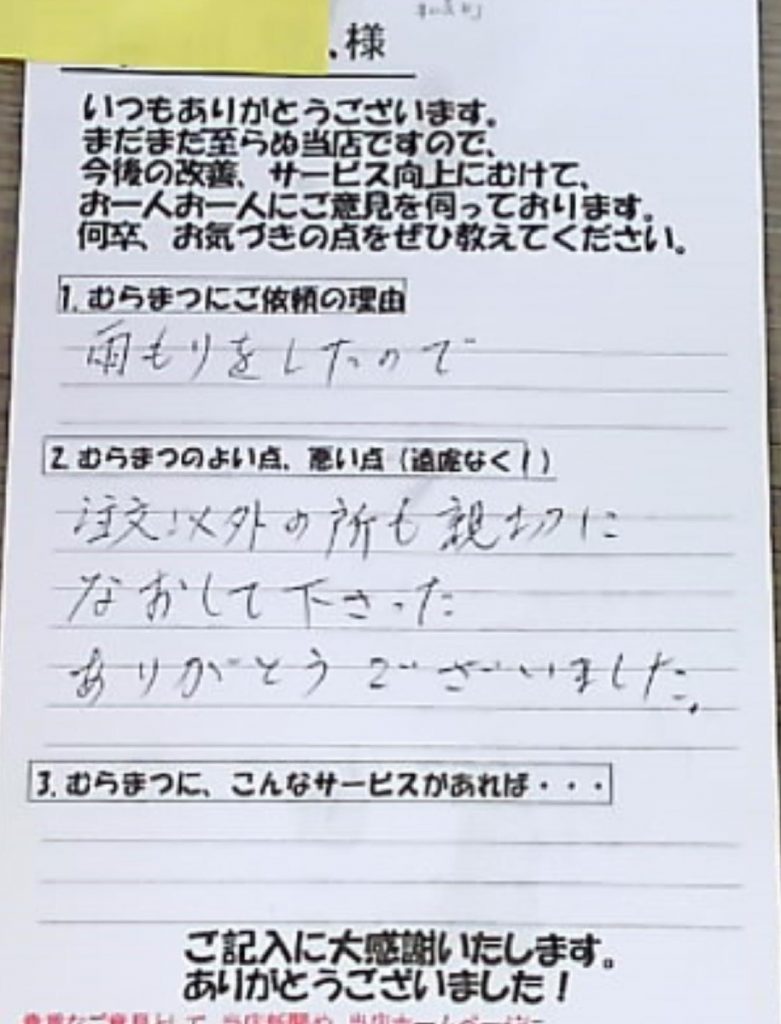 様
いつもありがとうございます。
まだまだ至らぬ当店ですので、
今後の改善、サービス向上にむけて、
お一人お一人にご意見を伺っております。
何卒、お気づきの点をぜひ教えてください。
1. むらまつにご依頼の理由
雨もりをしたので
2. むらまつのよい点、悪い点（遠慮なく！）
注文以外の所も親切に
なおして下さった
ありがとうございました.
3. むらまつに、こんなサービスがあれば・・・
ご記入に大感謝いたします。
ありがとうございました！
貴重なご意見として、当店新聞や、当店ホームページに